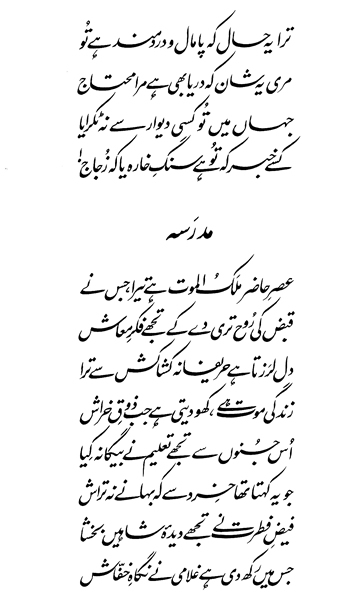 ترا یہ حال کہ پامال و دردمند ہے تُو
مری یہ شان کہ دریا بھی ہے مرا محتاج
جہاں میں تُو کسی دیوار سے نہ ٹکرایا
کسے خبر کہ تُو ہے سنگِ خارہ یا کہ زُجاج!
مدرَسہ
عصرِ حاضر مَلَکُ الموت ہے تیرا، جس نے
قبض کی رُوح تری دے کے تجھے فکرِ معاش
دل لرزتا ہے حریفانہ کشاکش سے ترا
زندگی موت ہے، کھو دیتی ہے جب ذوقِ خراش
اُس جُنوں سے تجھے تعلیم نے بیگانہ کِیا
جو یہ کہتا تھا خرد سے کہ بہانے نہ تراش
فیضِ فطرت نے تجھے دیدۂ شاہیں بخشا
جس میں رکھ دی ہے غلامی نے نگاہِ خفّاش